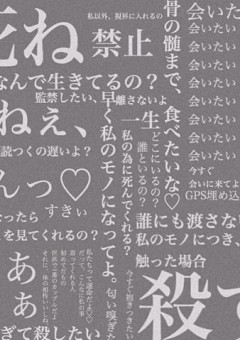 死ね
私以外、視界に入れるの
禁止
なんで生きてるの？
監禁したい、
離さないよ
ねぇ、
早く私のモノになってよ。
骨の髄まで、食べたいな♡
会いた
会いたい
会いたい
会いたい
会いたい
会いたい
会いたい
今すぐ
会いに来てよ
GPS埋め込
一生
私の為に死んでくれる？
どこにいるの？
誰といるの？
読つくの遅いよ？
んっ♡
すきぃ
なったら
を見てくれるの？
誰にも渡さな
私のモノにつき、
触った場合
殺す
ああ
ぎて殺したい
匂い嗅ぎた
今すぐ抱きつきたい